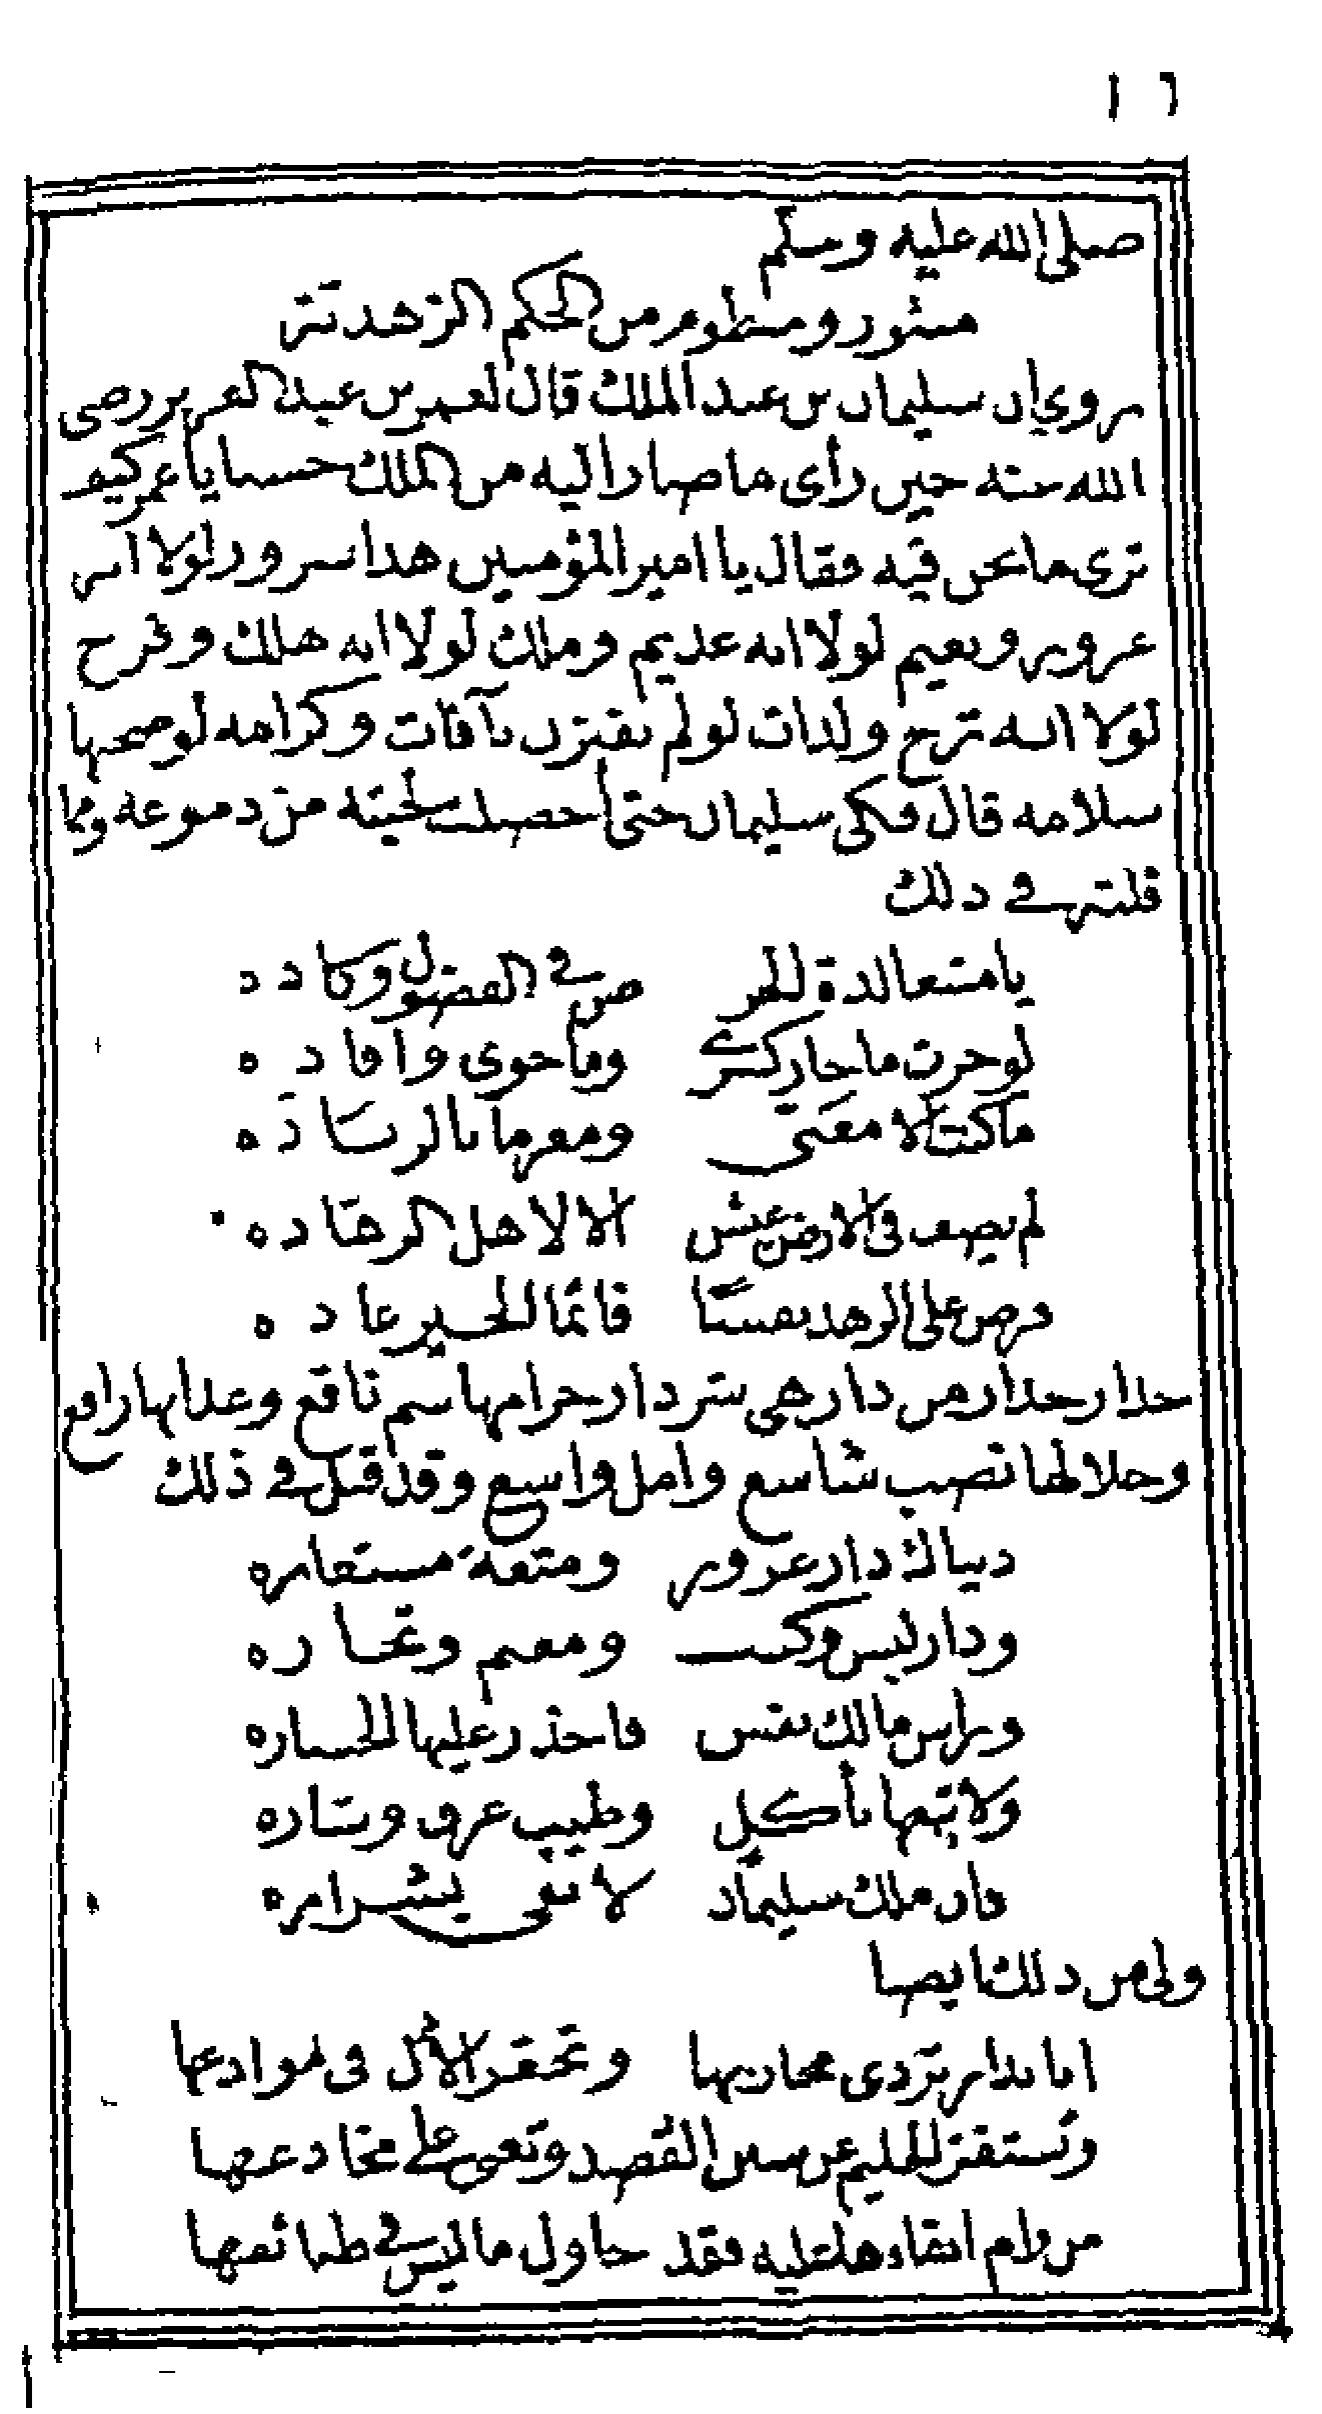 ١٦
صلى الله عليه وسلم
منثور ومنظوم من الحكم الزهدية
روي ان سليمان بن عبد الملك قال لعمر بن عبد العزيز رضي
الله عنه حين رأى ما صار اليه من الملك حسا يا عمر كيف
ترى ما نحن فيه فقال يا امير المؤمنين هذا سرور لولا انه
غرور ونعيم لولا انه عديم وملك لولا انه هلك وفرح
لولا انه ترح ولذات لو لم تقترن بآفات وكرامه لو صحبها
سلامه قال فبكى سليمان حتى اخضلت لحيته من دموعه ومما
قلته في ذلك
يا متعا لذة الحر ص في الفضول وكاده
لو حزت ما حاز كسرى وما حوى وافاده
ما كنت الا معنى ومغرما بالزياده
لم يصف في الارض عيش الا لاهل الزهاده
فرض على الزهد نفسا فانما الخير عاده
حذار حذار من دار هي شر دار حرامها سم ناقع وعذابها رافع
وحلالها نصب شاسع وامل واسع وقد قيل في ذلك
دنياك دار غرور ومتعة مستعاره
ودار لبس وكسب ومغنم وتجاره
وراس مالك نفس فاحذر عليها الخساره
ولا تبعها باكل وطيب عرف وشاره
فان ملك سليمان لا يفي بشراره
ولي من ذلك ايضا
وتحقر الامل في موادعها
وتستفز الحليم عن سنن القصد وتعمى على مخادعها
من رام ابقاءها عليه فقد حاول ما ليس في طبائعها